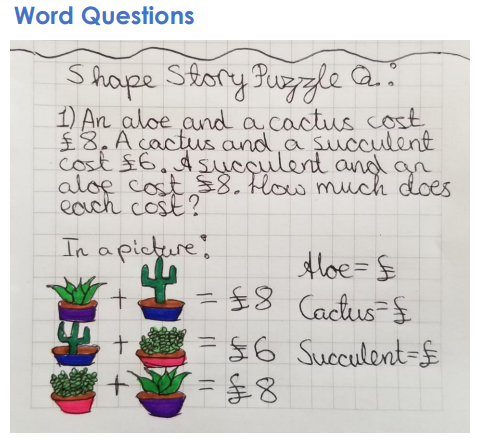 Word Questions
Shape Story Puzzle Q.:
1) An aloe and a cactus cost
£8. A cactus and a succulent
cost £6. A succulent and an
aloe cost £8. How much does
each cost?
In a picture:
+ = £8
+ = £6
+ = £8
Aloe = £
Cactus = £
Succulent = £